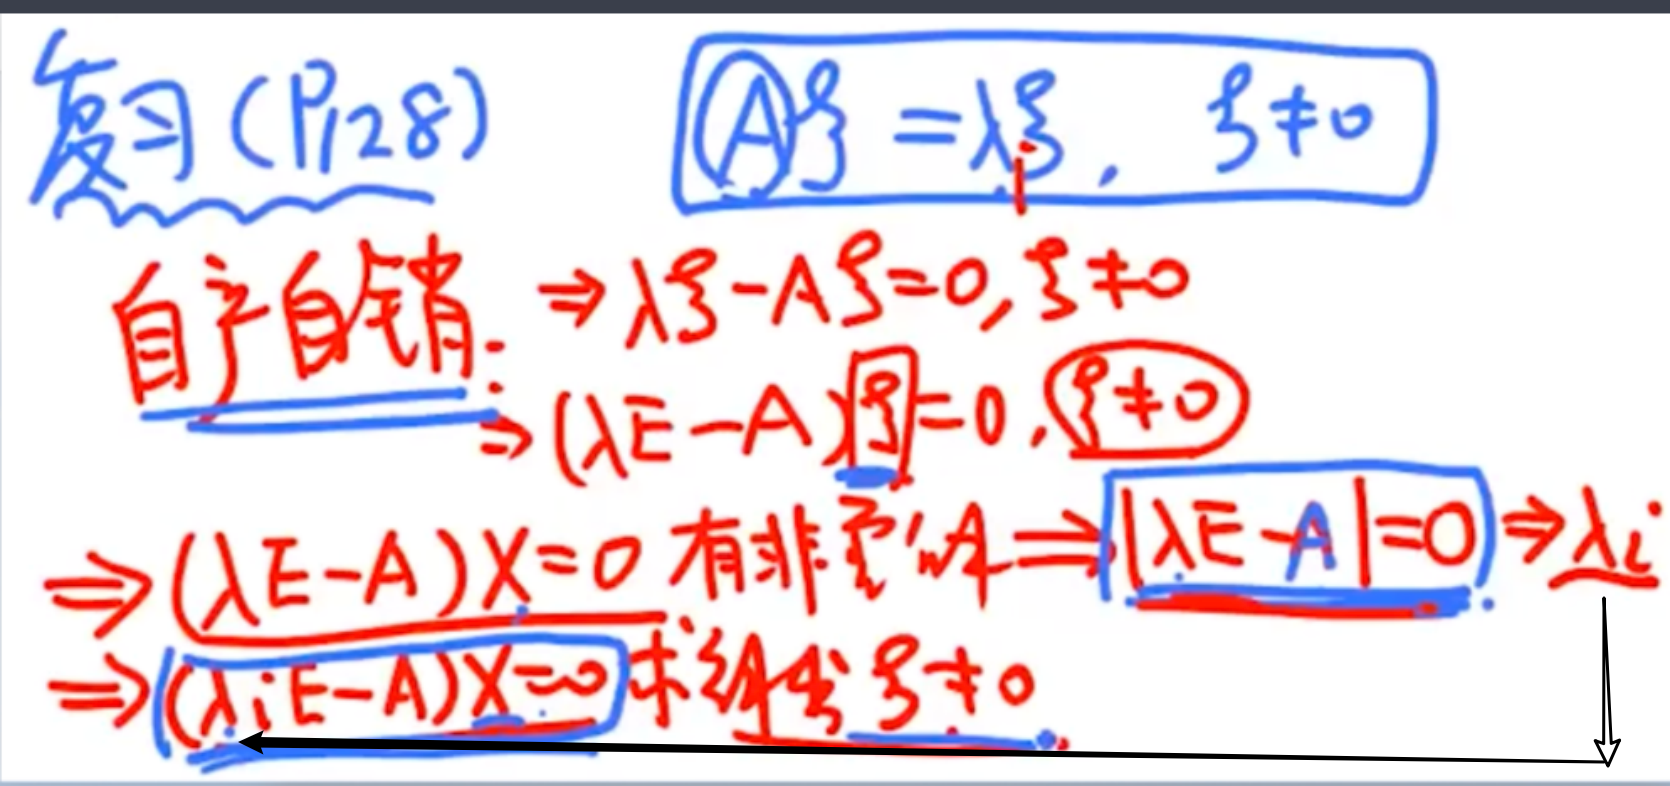 复习(P128)
Aξ=λξ, ξ≠0
自产自销: ⇒λξ-Aξ=0,ξ≠0
⇒(λE-A)ξ=0,ξ≠0
⇒(λE-A)X=0有非零解⇒|λE-A|=0⇒λi
⇒(λiE-A)X=0求ξ≠0